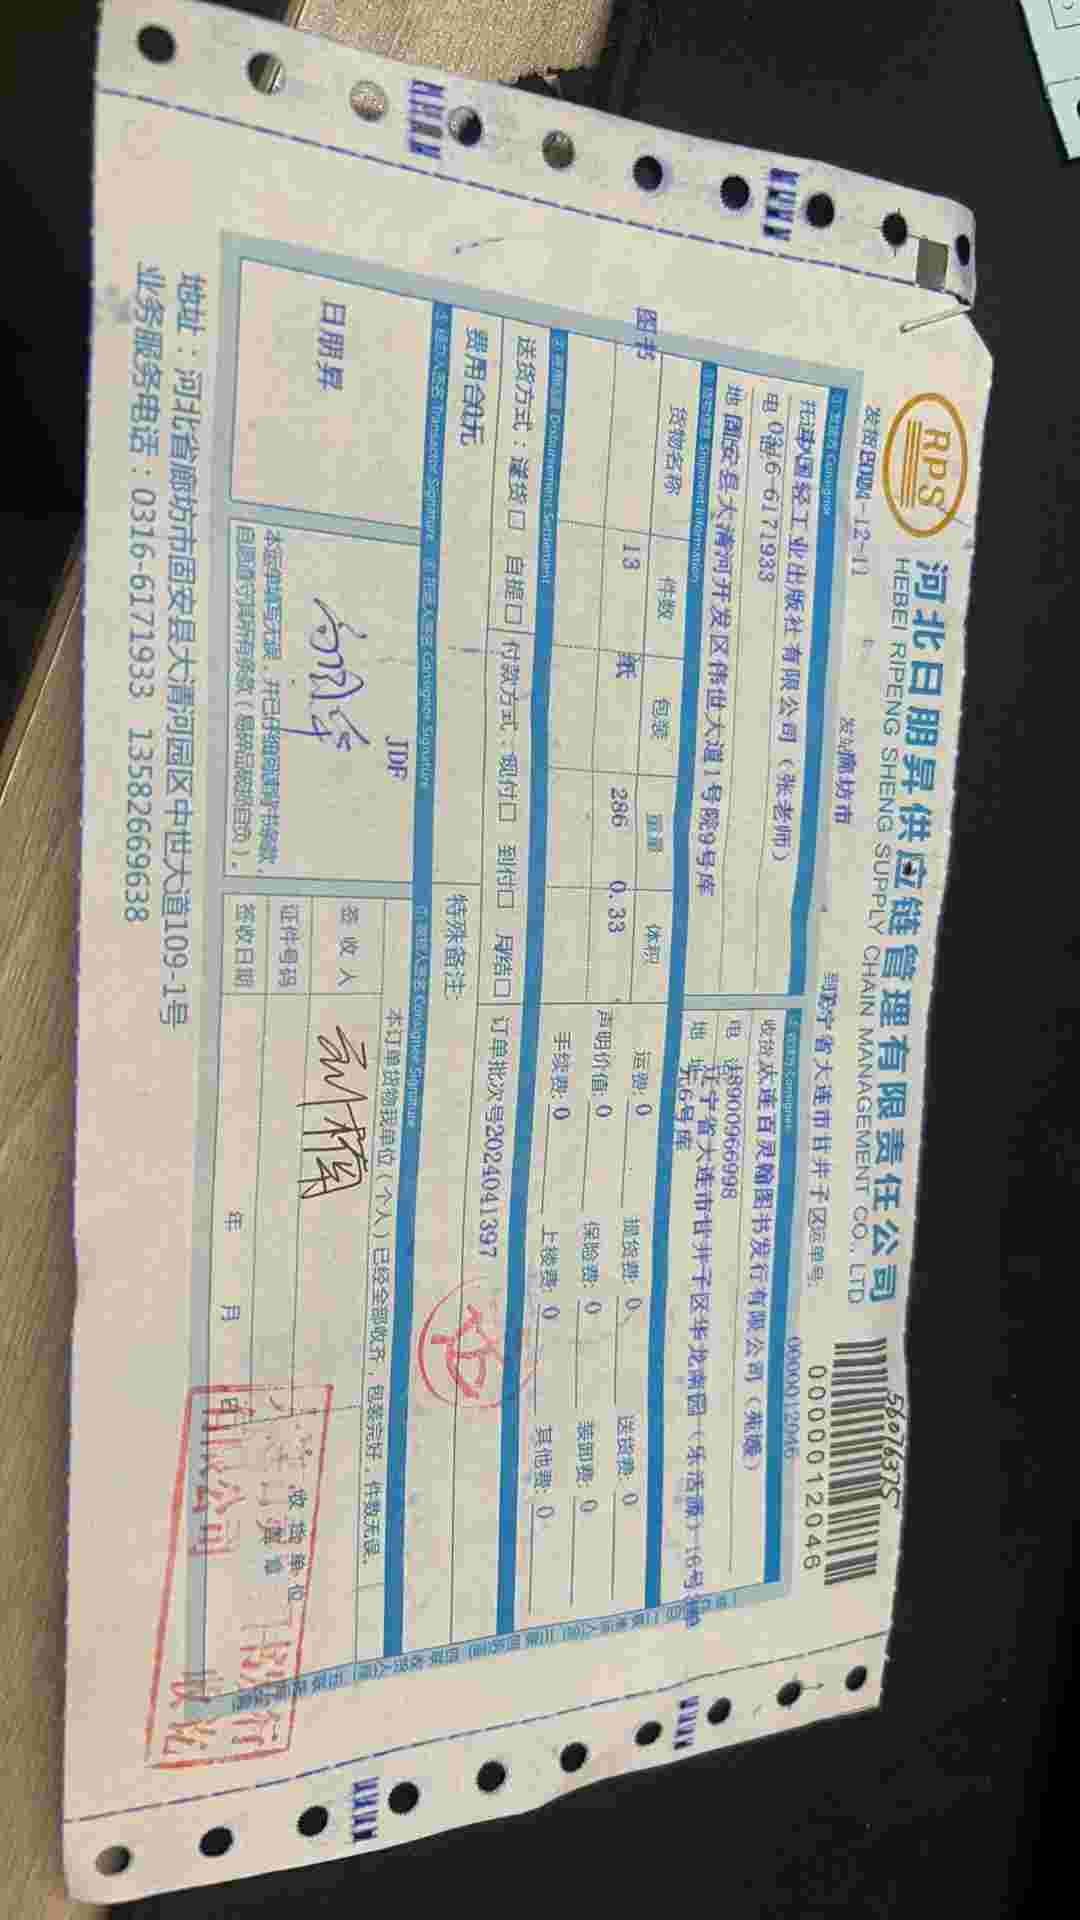 RPS
河北日朋昇供应链管理有限责任公司
HEBEI RIPENG SHENG SUPPLY CHAIN MANAGEMENT CO., LTD
56076375
0000012046
发货日 -12-11
发站廊坊市
辽宁省大连市甘井子区运单号:
0000012046
Consignor
国轻工业出版社有限公司（张老师）
6-6171933
固安县大清河开发区伟世大道1号院9号库
Consignee
收货 大连百灵翰图书发行有限公司（苑媛）
电 话18900966998
地 址 辽宁省大连市甘井子区华龙南园（乐活源）-16号
元6号库
Shipment Information
货物名称 件数 包装 重量 体积
图书 13 纸 286 0.33
运费: 0 提货费: 0 送货费: 0
声明价值: 0 保险费: 0 装卸费: 0
手续费: 0 上楼费: 0 其他费: 0
Disbursement Settlement
送货方式：送货口 自提口 付款方式：现付口 到付口 月结口 订单批次号2024041397
费用合 元
特殊备注:
Transactor Signature
Consignor Signature
Consignee Signature
日朋昇
JDF
本运单填写无误，并已仔细阅读背书条款，
自愿遵守其所有条款（易碎品破损自负）。
本订单货物我单位（个人）已经全部收齐，包装完好，件数无误。
签 收 人
证件号码
签收日期
年 月 日
收货单位
盖章
有限公司
地址：河北省廊坊市固安县大清河园区中世大道109-1号
业务服务电话：0316-6171933 13582669638